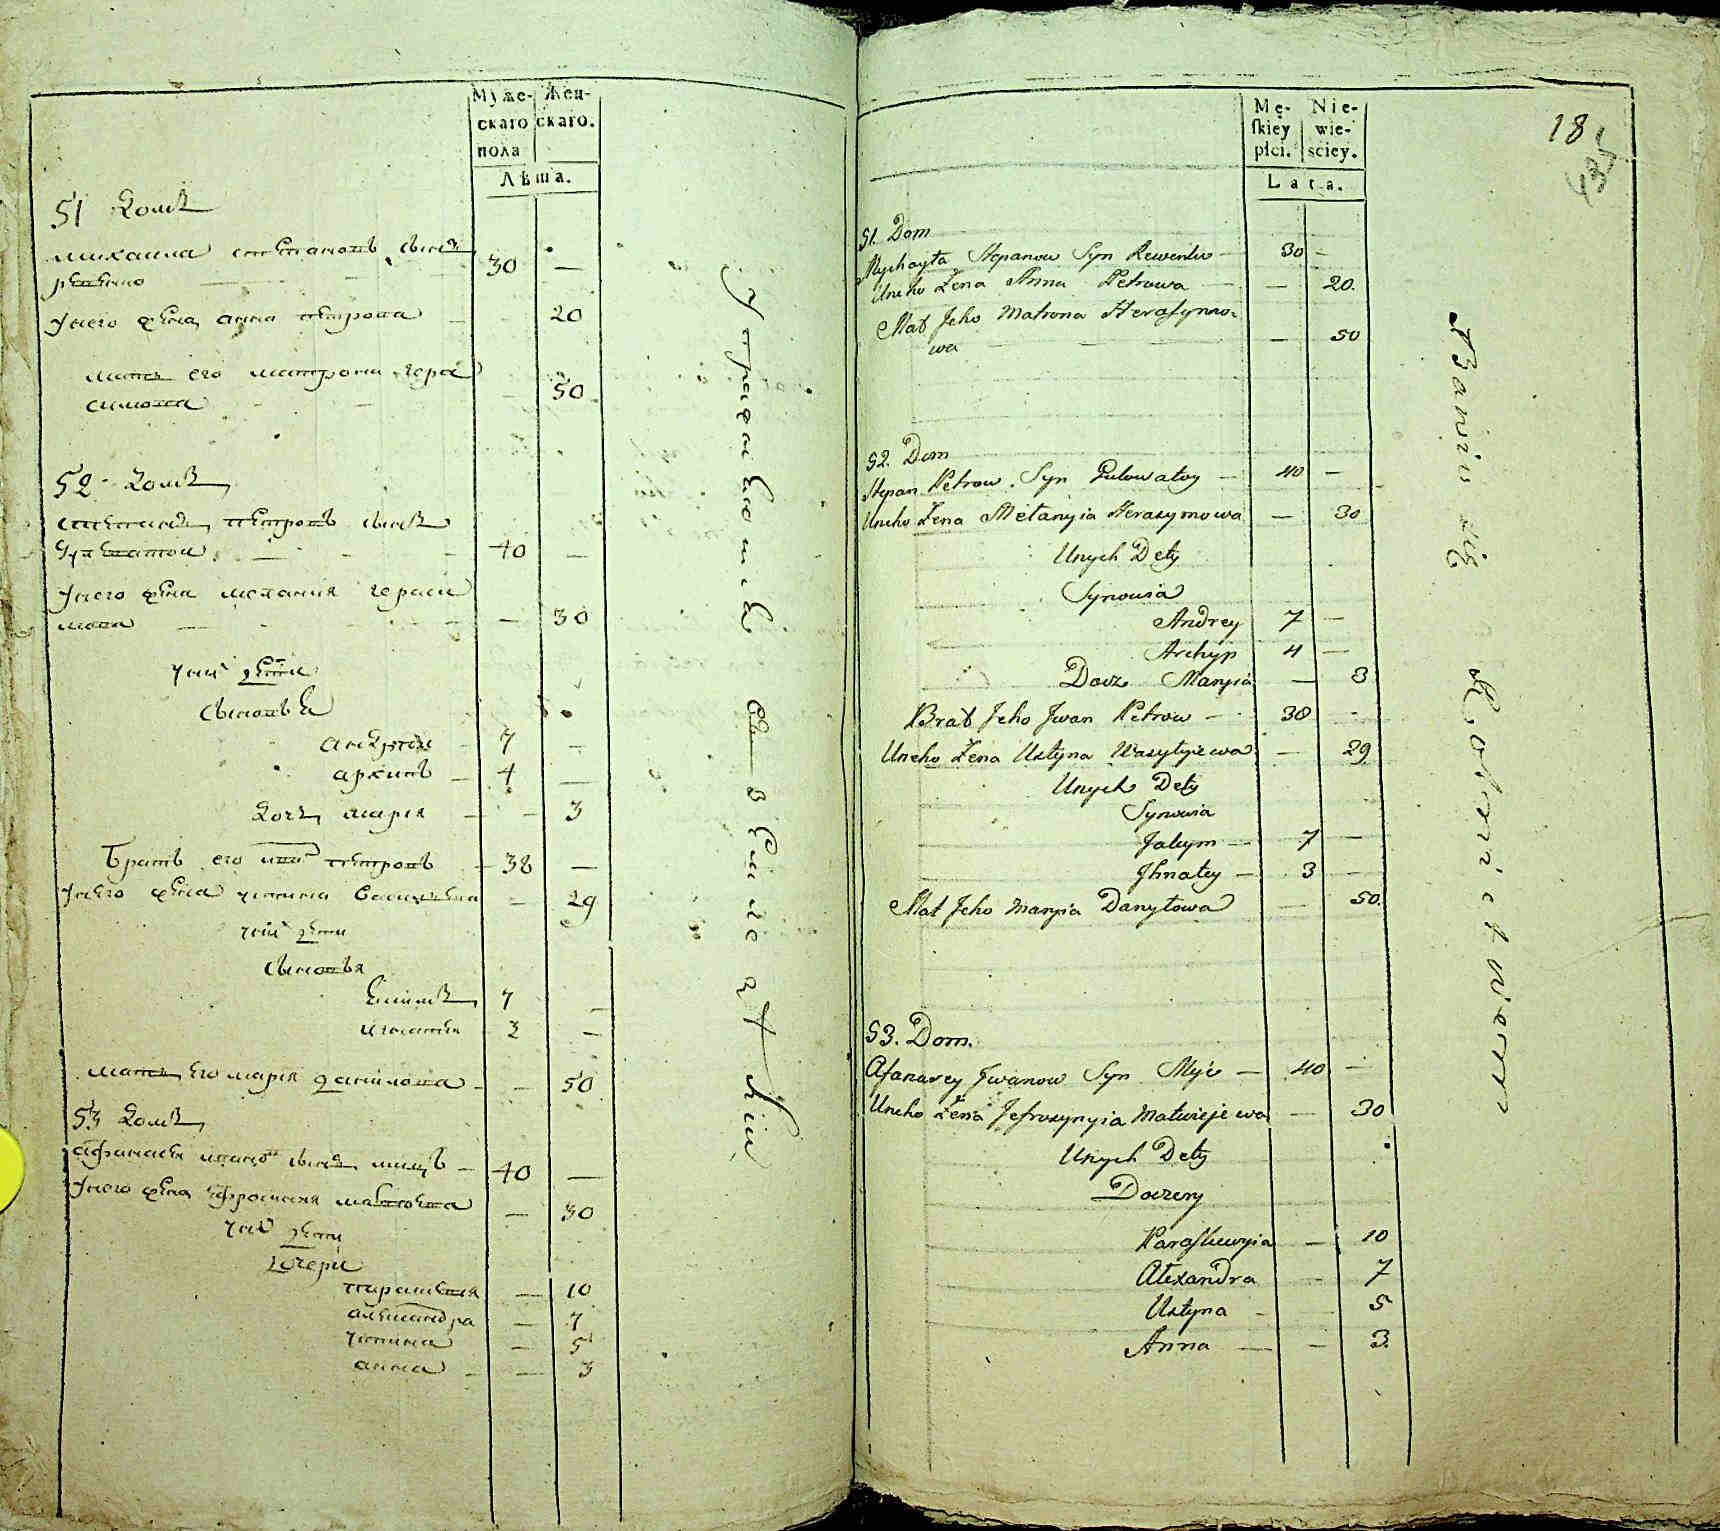 Муже-
скаго
пола
Жен-
скаго.
Лѣта.
51 Домъ
михаила степановъ сынъ
ревенко 30 —
унего жена анна петрова — 20
мать его матрона гера
симова — 50
52 Домъ
степанъ петровъ сынъ
40 —
унего жена мелания гераси
мова — 30
уних дети
сыновья
андрей 7 —
архипъ 4 —
дочь мария — 3
братъ его иван петровъ 38 —
унего жена устина васильева — 29
уних дети
сыновья
екимъ 7 —
игнатей 3 —
мать его мария данилова — 50
53 Домъ
афанасей иванов сынъ мицъ 40 —
унего жена ефросиния матвеева — 30
уних дети
дочери
парасковия — 10
александра — 7
устина — 5
анна — 3
упражняются в земледелствии
Mę-
skiey
płci.
Nie-
wie-
sciey.
Lata.
18
435
51. Dom
Mychayła Stepanow Syn Rewenko 30 —
Uneho Żena Anna Petrowa — 20.
Mat Jeho Matrona Herasymo-
wa — 50
52. Dom
Stepan Petrow Syn Pulowatoy 40 —
Uneho Żena Mełanyia Herasymowa — 30
Unych Dety
Synowia
Andrey 7 —
Archyp 4 —
Docz Maryia — 3
Brat Jeho Jwan Petrow 38 —
Uneho Żena Ustyna Wasylyiewa — 29
Unych Dety
Synowia
Jakym 7 —
Jhnatey 3 —
Mat Jeho Maryia Danyłowa — 50.
53. Dom.
Afanasey Jwanow Syn Myc 40 —
Uneho Żena Jefrosynyia Matwiejewa — 30
Unych Dety
Doczery
Paraskewyia — 10
Alexandra — 7
Ustyna — 5
Anna — 3
Bawią się Rolnictwem